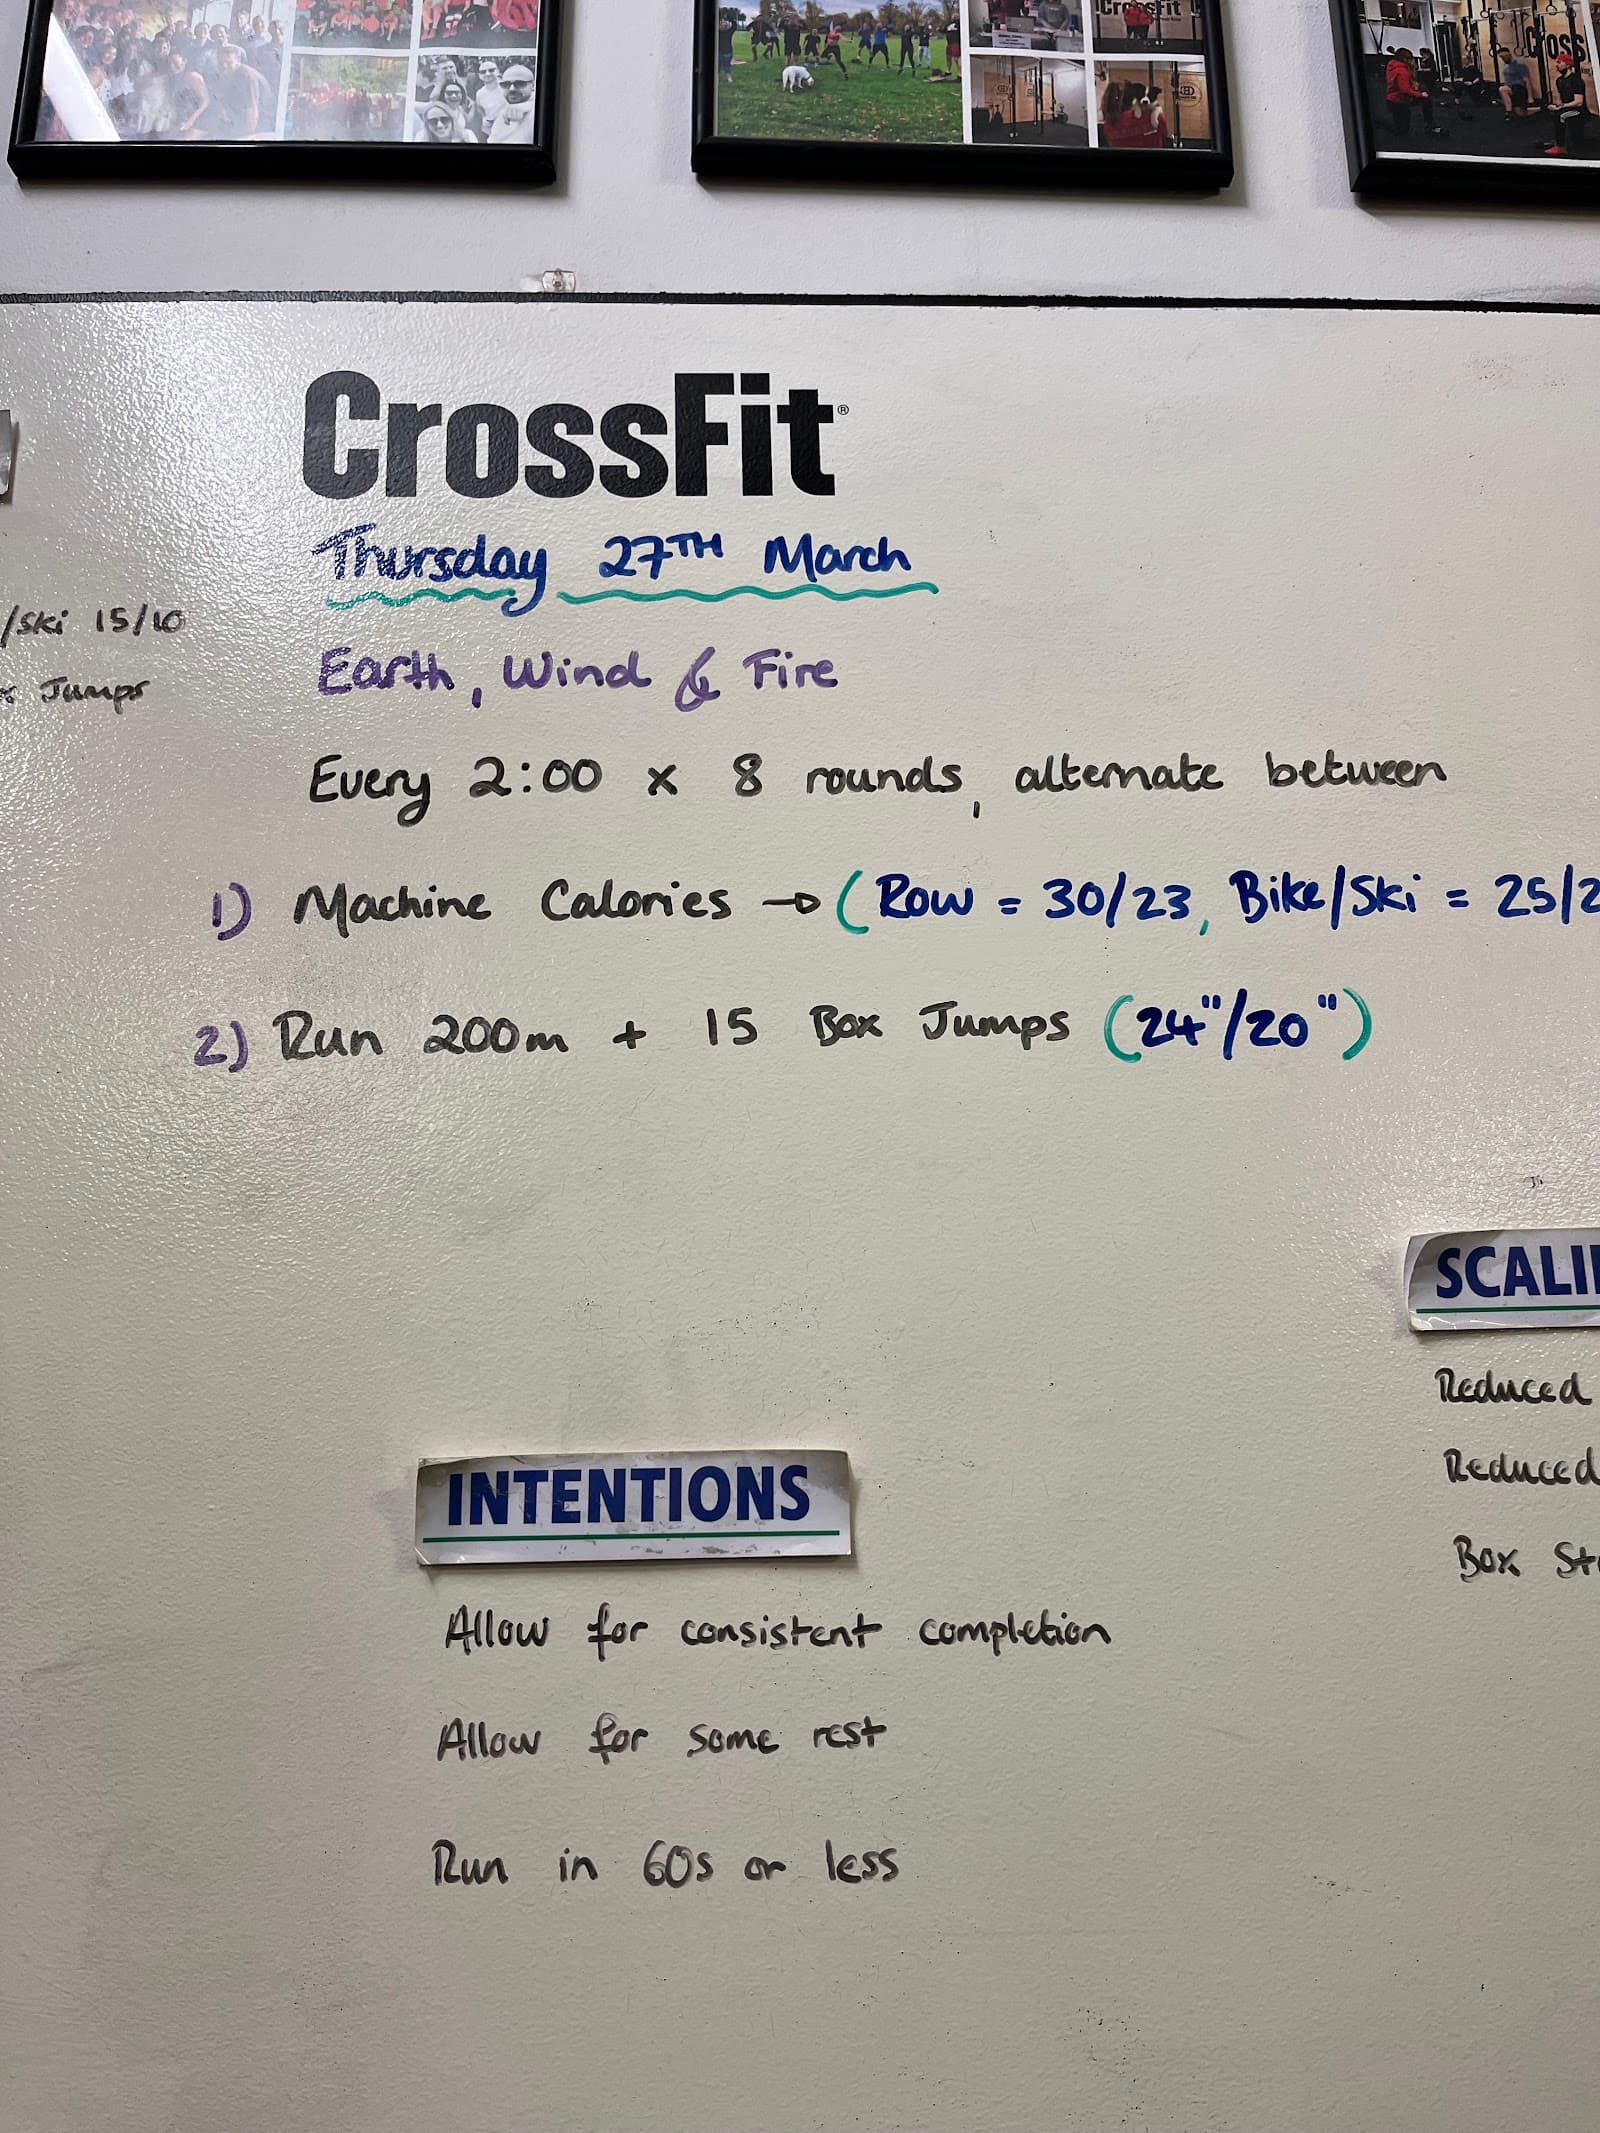 CrossFit
CrossFit
CrossFit®
Thursday 27TH March
/Ski 15/10
Jumps
Earth, Wind & Fire
Every 2:00 x 8 rounds, alternate between
1) Machine Calories → (Row = 30/23, Bike/Ski = 25/2
2) Run 200m + 15 Box Jumps (24"/20")
SCALI
Reduced
Reduced
Box St
INTENTIONS
Allow for consistent completion
Allow for some rest
Run in 60s or less